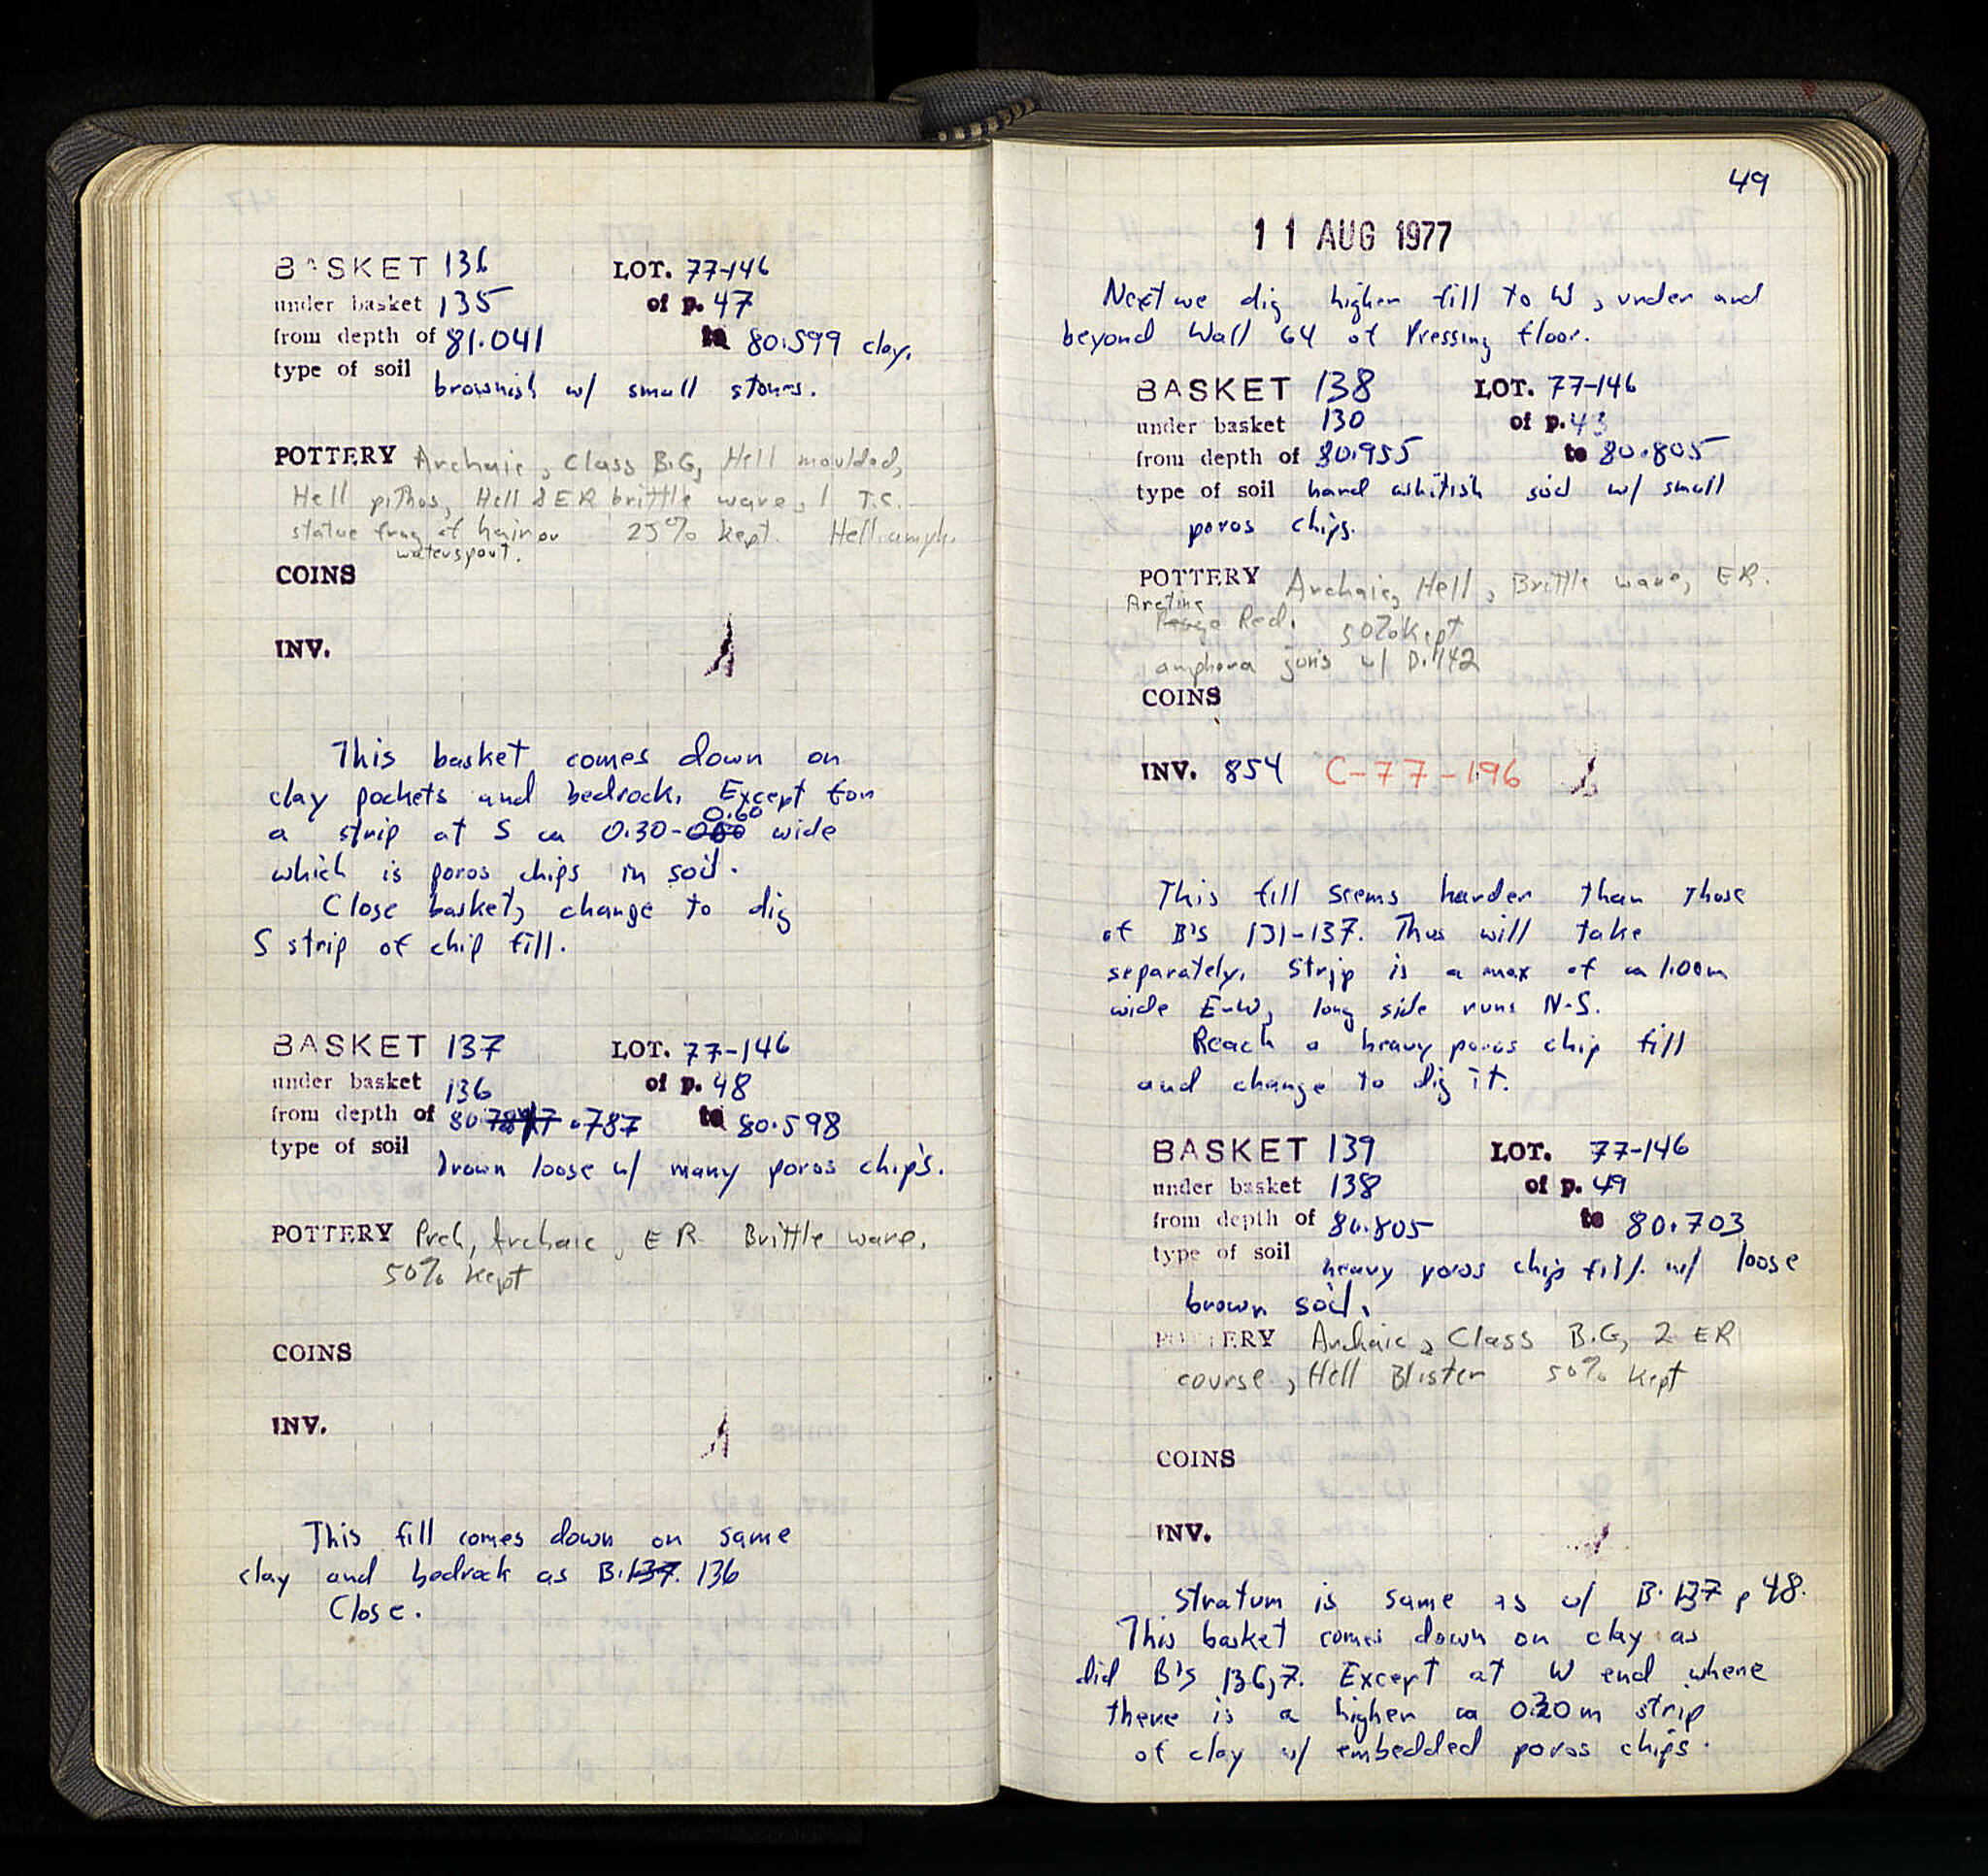 BASKET 136 LOT. 77-146
under basket 135 of p. 47
from depth of 81.041 to 80.599 clay,
type of soil
brownish w/ small stones.
POTTERY Archaic, Class B.G, Hell moulded,
Hell pithos, Hell & ER brittle ware, 1 T.C.
statue frag of hair or 25% kept. Hell amph.
waterspout.
COINS
INV.
This basket comes down on
clay pockets and bedrock. Except for
a strip at S ca 0.30-0.60 wide
which is poros chips in soil.
Close basket, change to dig
S strip of chip fill.
BASKET 137 LOT. 77-146
under basket 136 of p. 48
from depth of 80.787 to 80.598
type of soil
brown loose w/ many poros chips.
POTTERY Preh, Archaic, ER Brittle ware,
50% kept
COINS
INV.
This fill comes down on same
clay and bedrock as B.137. 136
Close.
49
11 AUG 1977
Next we dig higher fill to W, under and
beyond Wall 64 of Pressing floor.
BASKET 138 LOT. 77-146
under basket 130 of p. 43
from depth of 80.955 to 80.805
type of soil hard whitish soil w/ small
poros chips.
POTTERY Archaic, Hell, Brittle ware, ER.
Aretine
Red. 50% Kept
amphora joins w/ B.142
COINS
INV. 854 C-77-196
This fill seems harder than those
of B's 131-137. Thus will take
separately. Strip is a max of ca 1.00m
wide E-W, long side runs N-S.
Reach a heavy poros chip fill
and change to dig it.
BASKET 139 LOT. 77-146
under basket 138 of p. 49
from depth of 80.805 to 80.703
type of soil
heavy poros chip fill w/ loose
brown soil.
POTTERY Archaic, Class B.G, 2 ER
course, Hell Blister 50% kept
COINS
INV.
Stratum is same as w/ B.137 p 48.
This basket comes down on clay as
did B's 136,7. Except at W end where
there is a higher ca 0.20m strip
of clay w/ embedded poros chips.